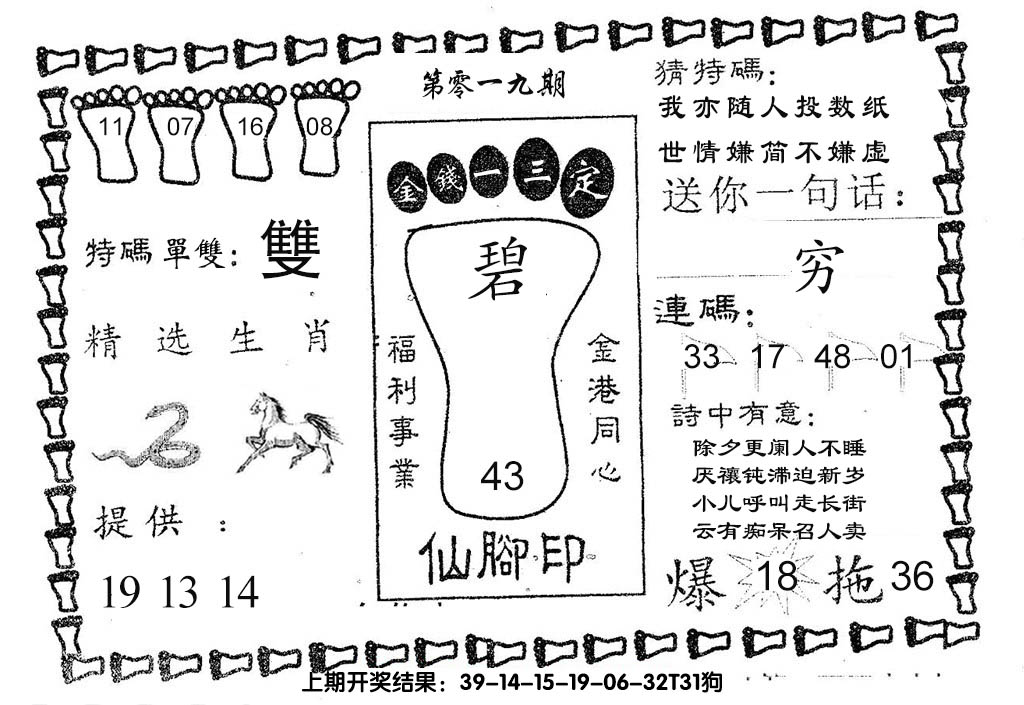 第零一九期
11 07 16 08
特碼單雙：雙
精选生肖
提供：
19 13 14
金錢一三定
碧
福利事業
金港同心
43
仙腳印
猜特碼：
我亦随人投数纸
世情嫌简不嫌虚
送你一句话：
穷
連碼：
33 17 48 01
詩中有意：
除夕更阑人不睡
厌禳钝滞迫新岁
小儿呼叫走长街
云有痴呆召人卖
爆 18 拖 36
上期开奖结果：39-14-15-19-06-32T31狗